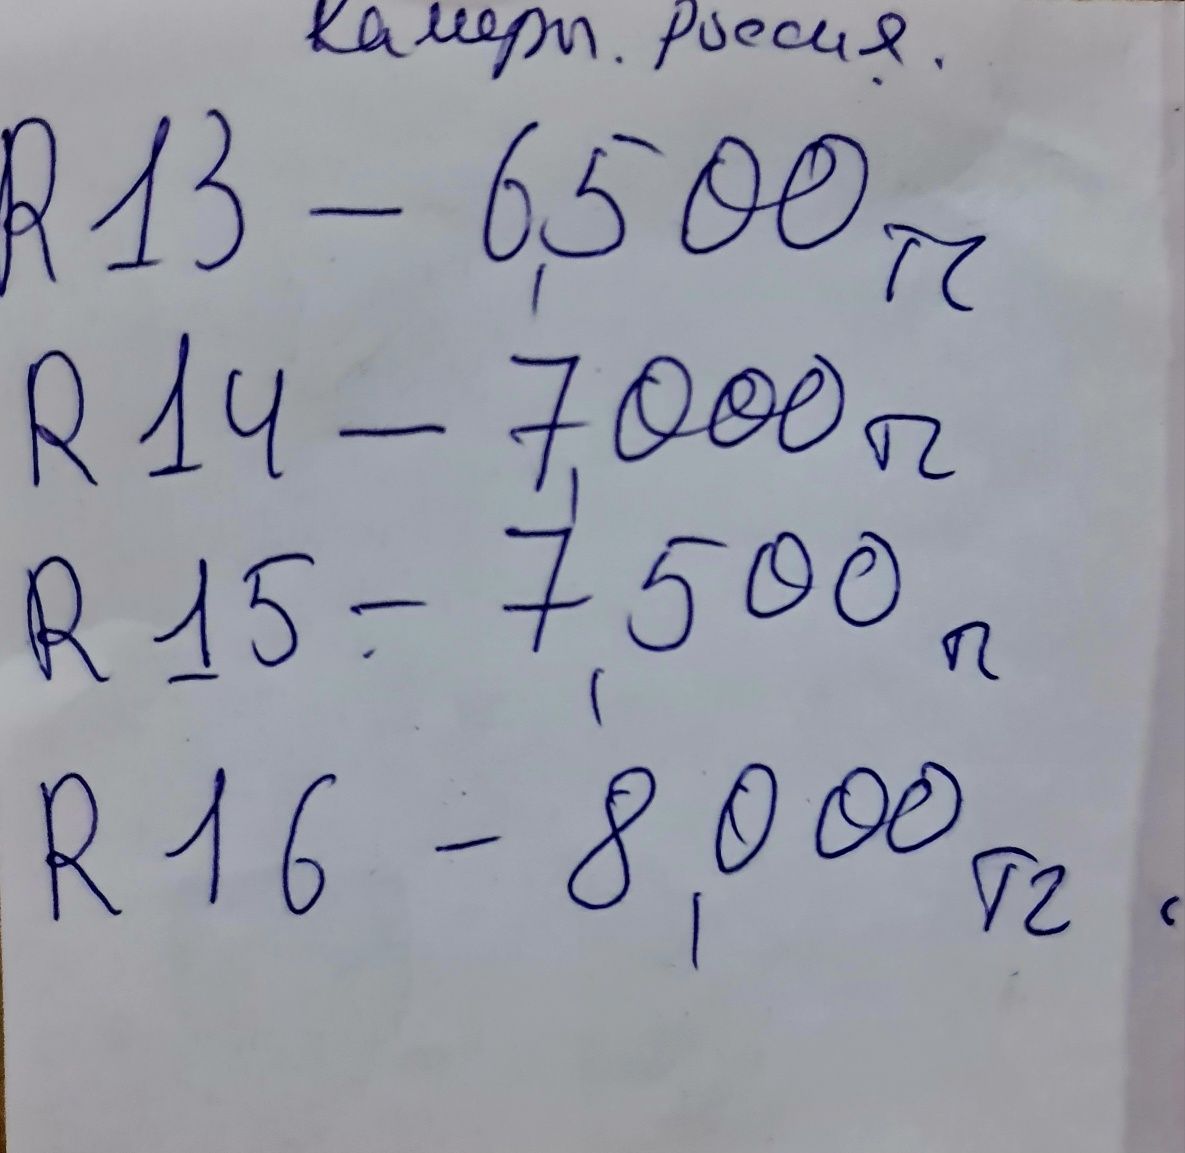 Камеры. Россия.
R13 – 6,500 тг
R14 – 7,000 тг
R15 – 7,500 тг
R16 – 8,000 тг